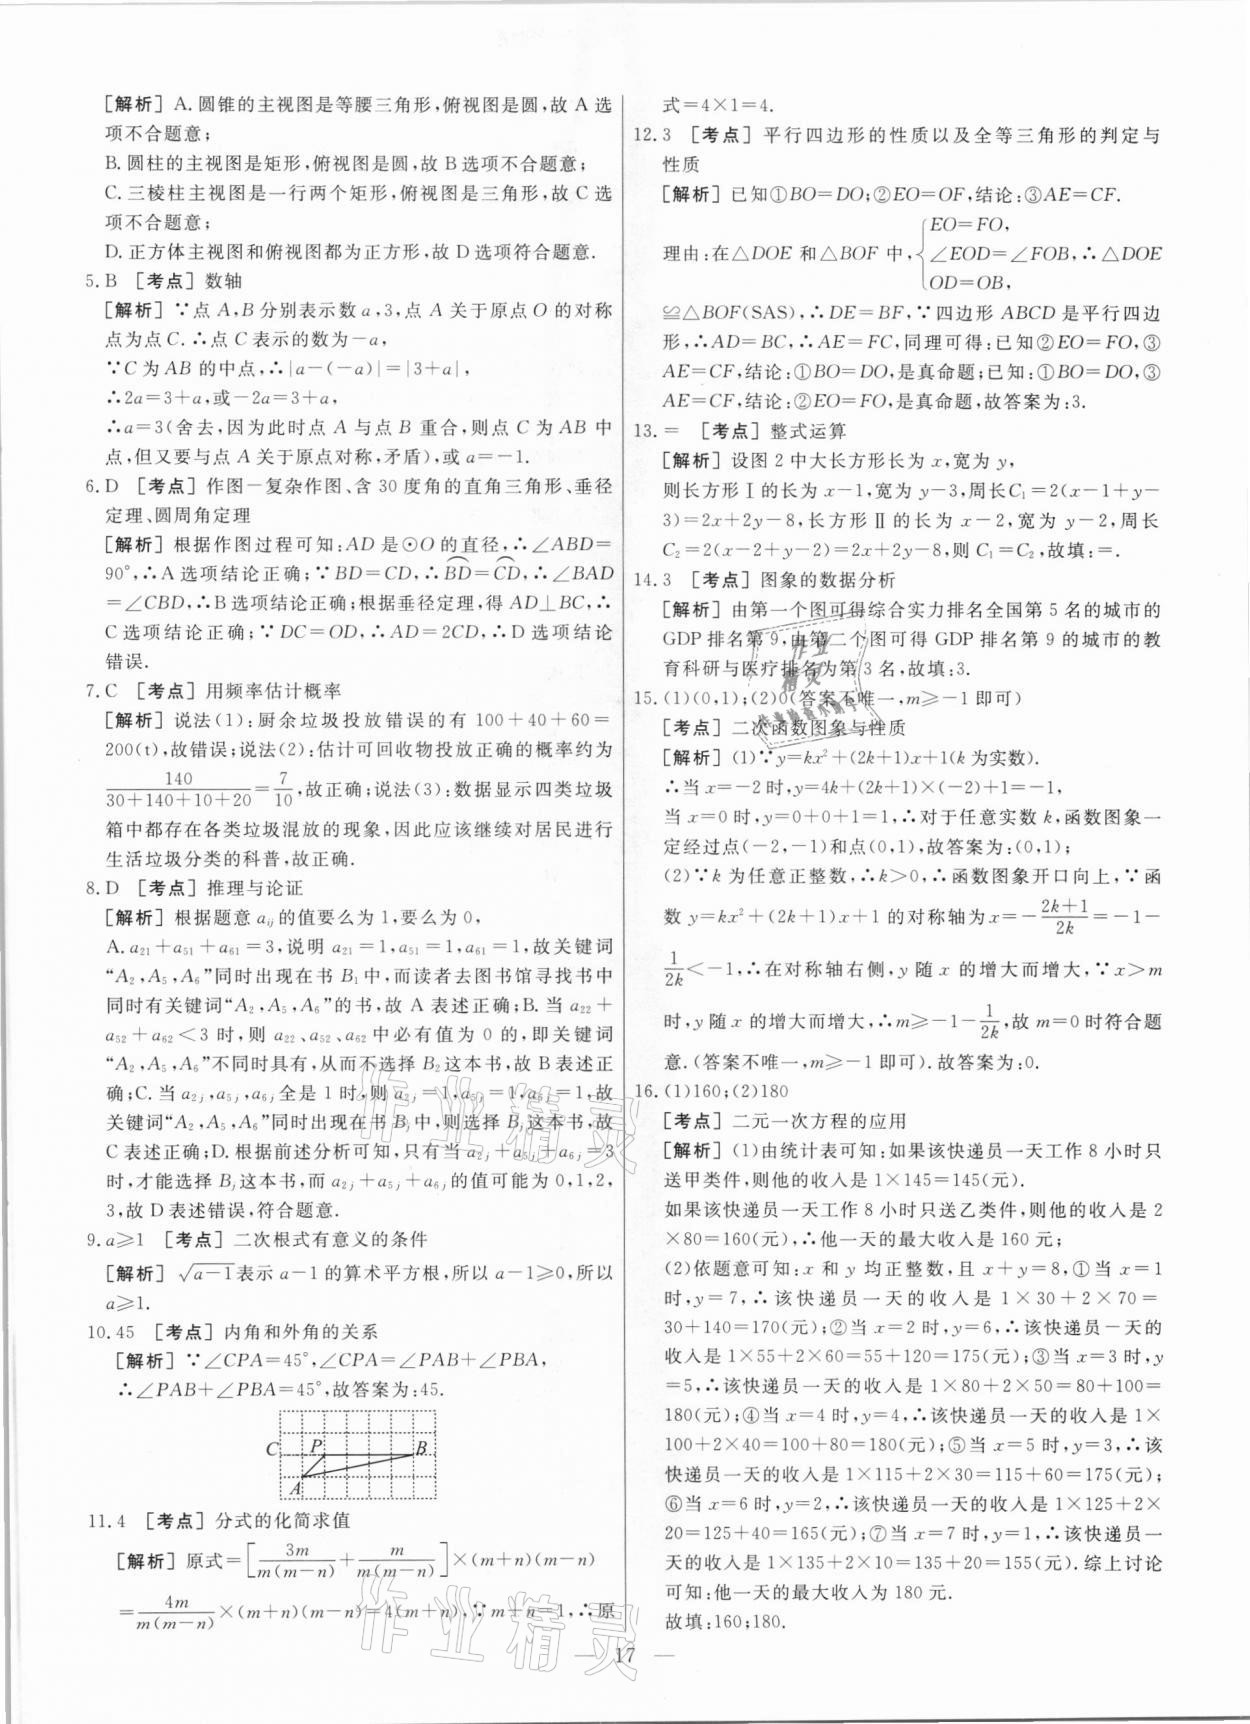 [解析]A.圆锥的主视图是等腰三角形,俯视图是圆,故A选
项不合题意;
B.圆柱的主视图是矩形,俯视图是圆,故B选项不合题意;
C.三棱柱主视图是一行两个矩形,俯视图是三角形,故C选
项不合题意;
D.正方体主视图和俯视图都为正方形,故D选项符合题意.
5.B [考点]数轴
[解析]∵点A,B分别表示数a,3,点A关于原点O的对称
点为点C.∴点C表示的数为-a,
∵C为AB的中点,∴|a-(-a)|=|3+a|,
∴2a=3+a,或-2a=3+a,
∴a=3(舍去,因为此时点A与点B重合,则点C为AB中
点,但又要与点A关于原点对称,矛盾),或a=-1.
6.D [考点]作图-复杂作图、含30度角的直角三角形、垂径
定理、圆周角定理
[解析]根据作图过程可知:AD是⊙O的直径,∴∠ABD=
90°,∴A选项结论正确;∵BD=CD,∴⌒BD=⌒CD,∴∠BAD
=∠CBD,∴B选项结论正确;根据垂径定理,得AD⊥BC,∴
C选项结论正确;∵DC=OD,∴AD=2CD,∴D选项结论
错误.
7.C [考点]用频率估计概率
[解析]说法(1):厨余垃圾投放错误的有100+40+60=
200(t),故错误;说法(2):估计可回收物投放正确的概率约为
140/(30+140+10+20)=7/10,故正确;说法(3):数据显示四类垃圾
箱中都存在各类垃圾混放的现象,因此应该继续对居民进行
生活垃圾分类的科普,故正确.
8.D [考点]推理与论证
[解析]根据题意aᵢⱼ的值要么为1,要么为0,
A.a₂₁+a₅₁+a₆₁=3,说明a₂₁=1,a₅₁=1,a₆₁=1,故关键词
“A₂,A₅,A₆”同时出现在书B₁中,而读者去图书馆寻找书中
同时有关键词“A₂,A₅,A₆”的书,故A表述正确;B.当a₂₂+
a₅₂+a₆₂<3时,则a₂₂、a₅₂、a₆₂中必有值为0的,即关键词
“A₂,A₅,A₆”不同时具有,从而不选择B₂这本书,故B表述正
确;C.当a₂ⱼ,a₅ⱼ,a₆ⱼ全是1时,则a₂ⱼ=1,a₅ⱼ=1,a₆ⱼ=1,故
关键词“A₂,A₅,A₆”同时出现在书Bⱼ中,则选择Bⱼ这本书,故
C表述正确;D.根据前述分析可知,只有当a₂ⱼ+a₅ⱼ+a₆ⱼ=3
时,才能选择Bⱼ这本书,而a₂ⱼ+a₅ⱼ+a₆ⱼ的值可能为0,1,2,
3,故D表述错误,符合题意.
9.a⩾1 [考点]二次根式有意义的条件
[解析]√(a-1)表示a-1的算术平方根,所以a-1⩾0,所以
a⩾1.
10.45 [考点]内角和外角的关系
[解析]∵∠CPA=45°,∠CPA=∠PAB+∠PBA,
∴∠PAB+∠PBA=45°,故答案为:45.
C P B
A
11.4 [考点]分式的化简求值
[解析]原式=[3m/(m(m-n))+m/(m(m-n))]×(m+n)(m-n)
=4m/(m(m-n))×(m+n)(m-n)=4(m+n),∵m+n=1,∴原
式=4×1=4.
12.3 [考点]平行四边形的性质以及全等三角形的判定与
性质
[解析]已知①BO=DO;②EO=OF,结论:③AE=CF.
理由:在△DOE和△BOF中,{EO=FO,
∠EOD=∠FOB,∴△DOE
OD=OB,
≌△BOF(SAS),∴DE=BF,∵四边形ABCD是平行四边
形,∴AD=BC,∴AE=FC,同理可得:已知②EO=FO,③
AE=CF,结论:①BO=DO,是真命题;已知:①BO=DO,③
AE=CF,结论:②EO=FO,是真命题,故答案为:3.
13.= [考点]整式运算
[解析]设图2中大长方形长为x,宽为y,
则长方形Ⅰ的长为x-1,宽为y-3,周长C₁=2(x-1+y-
3)=2x+2y-8,长方形Ⅱ的长为x-2,宽为y-2,周长
C₂=2(x-2+y-2)=2x+2y-8,则C₁=C₂,故填:=.
14.3 [考点]图象的数据分析
[解析]由第一个图可得综合实力排名全国第5名的城市的
GDP排名第9,由第二个图可得GDP排名第9的城市的教
育科研与医疗排名为第3名,故填:3.
15.(1)(0,1);(2)0(答案不唯一,m⩾-1即可)
[考点]二次函数图象与性质
[解析](1)∵y=kx²+(2k+1)x+1(k为实数).
∴当x=-2时,y=4k+(2k+1)×(-2)+1=-1,
当x=0时,y=0+0+1=1,∴对于任意实数k,函数图象一
定经过点(-2,-1)和点(0,1),故答案为:(0,1);
(2)∵k为任意正整数,∴k>0,∴函数图象开口向上,∵函
数y=kx²+(2k+1)x+1的对称轴为x=-(2k+1)/2k=-1-
1/2k<-1,∴在对称轴右侧,y随x的增大而增大,∵x>m
时,y随x的增大而增大,∴m⩾-1-1/2k,故m=0时符合题
意.(答案不唯一,m⩾-1即可).故答案为:0.
16.(1)160;(2)180
[考点]二元一次方程的应用
[解析](1)由统计表可知:如果该快递员一天工作8小时只
送甲类件,则他的收入是1×145=145(元).
如果该快递员一天工作8小时只送乙类件,则他的收入是2
×80=160(元),∴他一天的最大收入是160元;
(2)依题意可知:x和y均正整数,且x+y=8,①当x=1
时,y=7,∴该快递员一天的收入是1×30+2×70=
30+140=170(元);②当x=2时,y=6,∴该快递员一天的
收入是1×55+2×60=55+120=175(元);③当x=3时,y
=5,∴该快递员一天的收入是1×80+2×50=80+100=
180(元);④当x=4时,y=4,∴该快递员一天的收入是1×
100+2×40=100+80=180(元);⑤当x=5时,y=3,∴该
快递员一天的收入是1×115+2×30=115+60=175(元);
⑥当x=6时,y=2,∴该快递员一天的收入是1×125+2×
20=125+40=165(元);⑦当x=7时,y=1,∴该快递员一
天的收入是1×135+2×10=135+20=155(元).综上讨论
可知:他一天的最大收入为180元.
故填:160;180.
— 17 —
作业精灵
作业精灵
作业
精灵